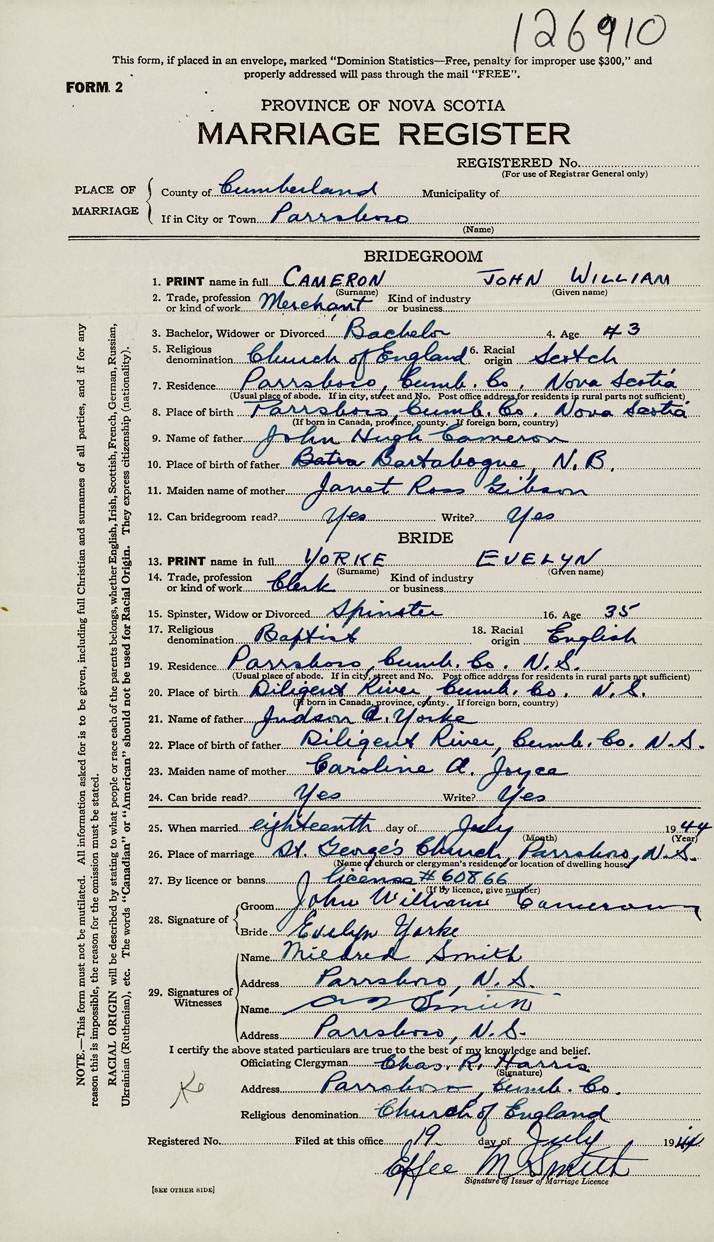 126910
This form, if placed in an envelope, marked "Dominion Statistics—Free, penalty for improper use $300," and
properly addressed will pass through the mail "FREE".
FORM 2
PROVINCE OF NOVA SCOTIA
MARRIAGE REGISTER
REGISTERED No.
(For use of Registrar General only)
PLACE OF MARRIAGE
County of Cumberland Municipality of
If in City or Town Parrsboro
(Name)
BRIDEGROOM
1. PRINT name in full CAMERON JOHN WILLIAM
(Surname) (Given name)
2. Trade, profession or kind of work Merchant Kind of industry or business
3. Bachelor, Widower or Divorced Bachelor 4. Age 43
5. Religious denomination Church of England 6. Racial origin Scotch
7. Residence Parrsboro, Cumb. Co., Nova Scotia
(Usual place of abode. If in city, street and No. Post office address for residents in rural parts not sufficient)
8. Place of birth Parrsboro, Cumb. Co., Nova Scotia
(If born in Canada, province, county. If foreign born, country)
9. Name of father John Hugh Cameron
10. Place of birth of father Bartabogue, N.B.
11. Maiden name of mother Janet Ross Gibson
12. Can bridegroom read? Yes Write? Yes
BRIDE
13. PRINT name in full YORKE EVELYN
(Surname) (Given name)
14. Trade, profession or kind of work Clerk Kind of industry or business
15. Spinster, Widow or Divorced Spinster 16. Age 35
17. Religious denomination Baptist 18. Racial origin English
19. Residence Parrsboro, Cumb. Co. N.S.
(Usual place of abode. If in city, street and No. Post office address for residents in rural parts not sufficient)
20. Place of birth Diligent River, Cumb. Co. N.S.
(If born in Canada, province, county. If foreign born, country)
21. Name of father Judson A. Yorke
22. Place of birth of father Diligent River, Cumb. Co. N.S.
23. Maiden name of mother Caroline A. Joyce
24. Can bride read? Yes Write? Yes
25. When married eighteenth day of July 1944
(Month) (Year)
26. Place of marriage St. George's Church, Parrsboro, N.S.
(Name of church or clergyman's residence or location of dwelling house)
27. By licence or banns license # 60866
(If by licence, give number)
28. Signature of
Groom John William Cameron
Bride Evelyn Yorke
29. Signatures of Witnesses
Name Mildred Smith
Address Parrsboro, N.S.
Name Smith
Address Parrsboro, N.S.
I certify the above stated particulars are true to the best of my knowledge and belief.
Officiating Clergyman Chas. R. Harris
(Signature)
Address Parrsboro, Cumb. Co.
Religious denomination Church of England
Registered No. Filed at this office 19 day of July 1944
Effee M Smith
Signature of Issuer of Marriage Licence
[SEE OTHER SIDE]
NOTE.—This form must not be mutilated. All information asked for is to be given, including full Christian and surnames of all parties, and if for any
reason this is impossible, the reason for the omission must be stated.
RACIAL ORIGIN will be described by stating to what people or race each of the parents belongs, whether English, Irish, Scottish, French, German, Russian,
Ukrainian (Ruthenian), etc. The words "Canadian" or "American" should not be used for Racial Origin. They express citizenship (nationality).